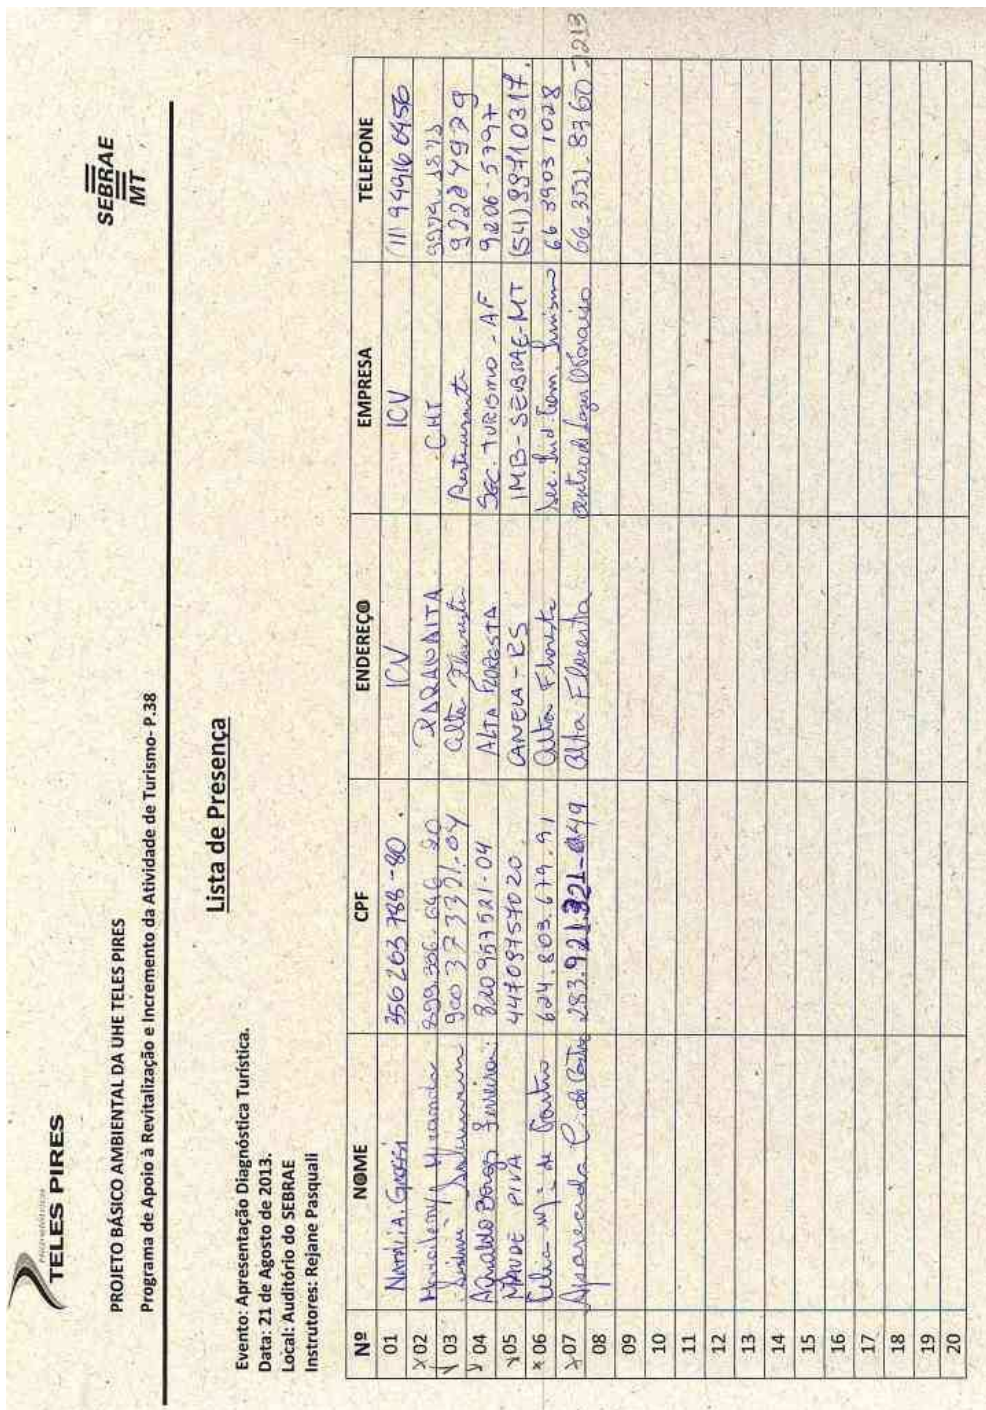 TELES PIRES
SEBRAE
MT
PROJETO BÁSICO AMBIENTAL DA UHE TELES PIRES
Programa de Apoio à Revitalização e Incremento da Atividade de Turismo- P.38
Lista de Presença
Evento: Apresentação Diagnóstica Turística.
Data: 21 de Agosto de 2013.
Local: Auditório do SEBRAE
Instrutores: Rejane Pasquali
Nº NOME CPF ENDEREÇO EMPRESA TELEFONE
01 NATALIA GROSSI 356263788-80. ICV ICV (11) 949166456
x 02 Miranda PARANAITA CHT
03 900 373321-04 Alta Floresta Restaurante
04 Agnaldo Borges Ferreira: 820957521-04 ALTA FLORESTA SEC. TURISMO - AF 9206-5797
05 MAUDE PIVA 44709757020 CANELA - RS IMB-SEBRAE-MT (54) 99710317.
x 06 Celia de Castro 624.803.679.91 Alta Floresta Sec. Ind. Com. Turismo 66 3903 1028
x 07 Aparecida C. de Castro 283.921.321-049 Alta Floresta centro de Lazer 66_3521_8360_7213
08
09
10
11
12
13
14
15
16
17
18
19
20